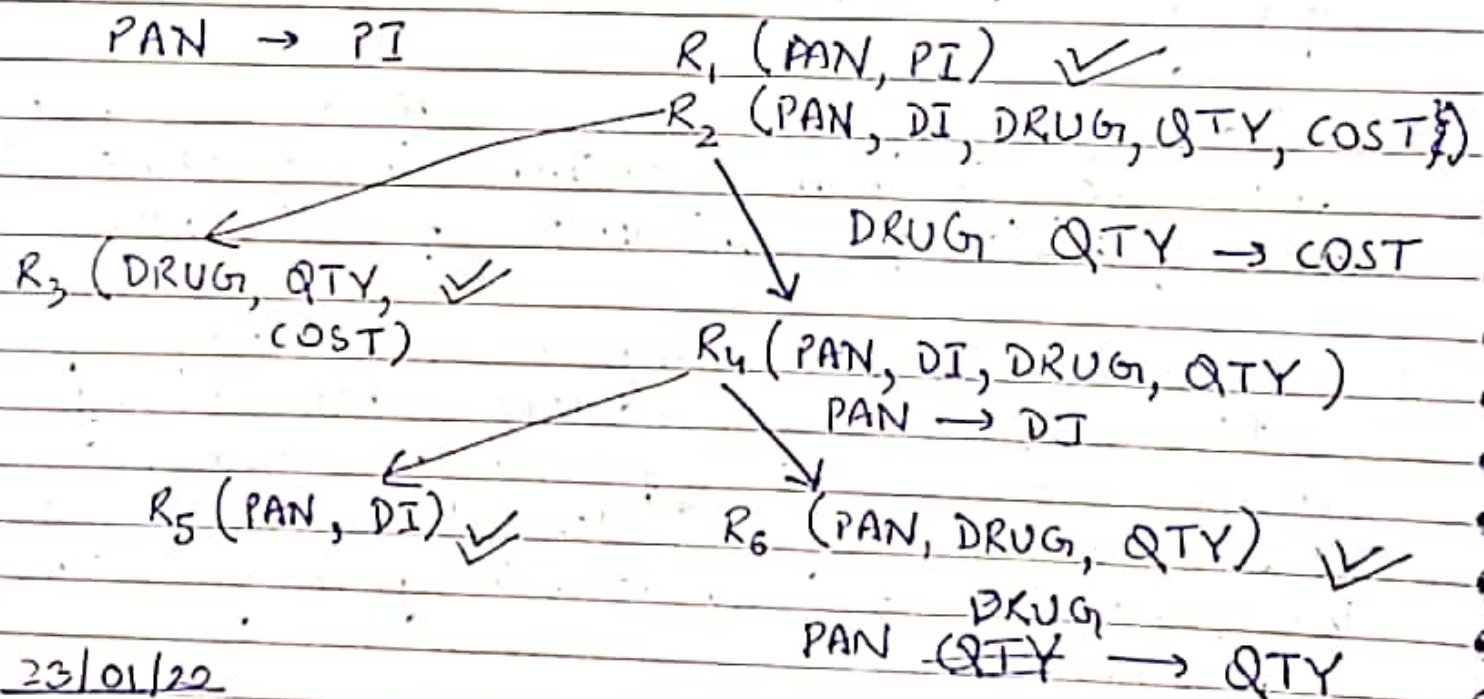 PAN → PI R₁ (PAN, PI)
R₂ (PAN, DI, DRUG, QTY, COST)
DRUG QTY → COST
R₃ (DRUG, QTY,
COST)
R₄ (PAN, DI, DRUG, QTY)
PAN → DI
R₅ (PAN, DI) R₆ (PAN, DRUG, QTY)
DRUG
PAN QTY → QTY
23/01/22